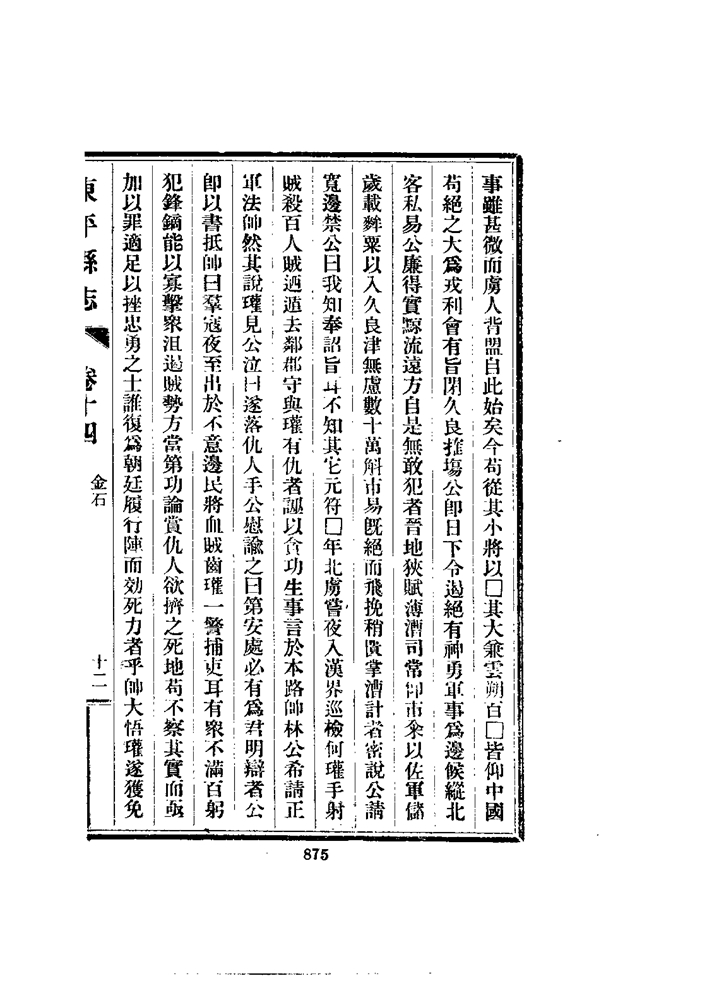 事雖甚微而虜人背盟自此始矣今苟從其小將以□其大兼雲朔百□皆仰中國
苟絕之大爲戎利會有旨閉久良搉塲公卽日下令遏絕有神勇軍事爲邊候縱北
客私易公廉得實黥流遠方自是無敢犯者晉地狹賦薄漕司常仰市糴以佐軍儲
歲載麰粟以入久良津無慮數十萬斛市易旣絕而飛挽稍匱掌漕計者密說公請
寬邊禁公曰我知奉詔旨耳不知其它元符□年北虜嘗夜入漢界巡檢何瓘手射
賊殺百人賊迺遁去鄰郡守與瓘有仇者誣以貪功生事言於本路帥林公希請正
軍法帥然其說瓘見公泣曰遂落仇人手公慰諭之曰第安處必有爲君明辯者公
卽以書抵帥曰羣寇夜至出於不意邊民將血賊齒瓘一警捕吏耳有衆不滿百躬
犯鋒鏑能以寡擊衆沮遏賊勢方當第功論賞仇人欲擠之死地苟不察其實而亟
加以罪適足以挫忠勇之士誰復爲朝廷履行陣而効死力者乎帥大悟瓘遂獲免
東平縣志 卷十四 金石 十二
875